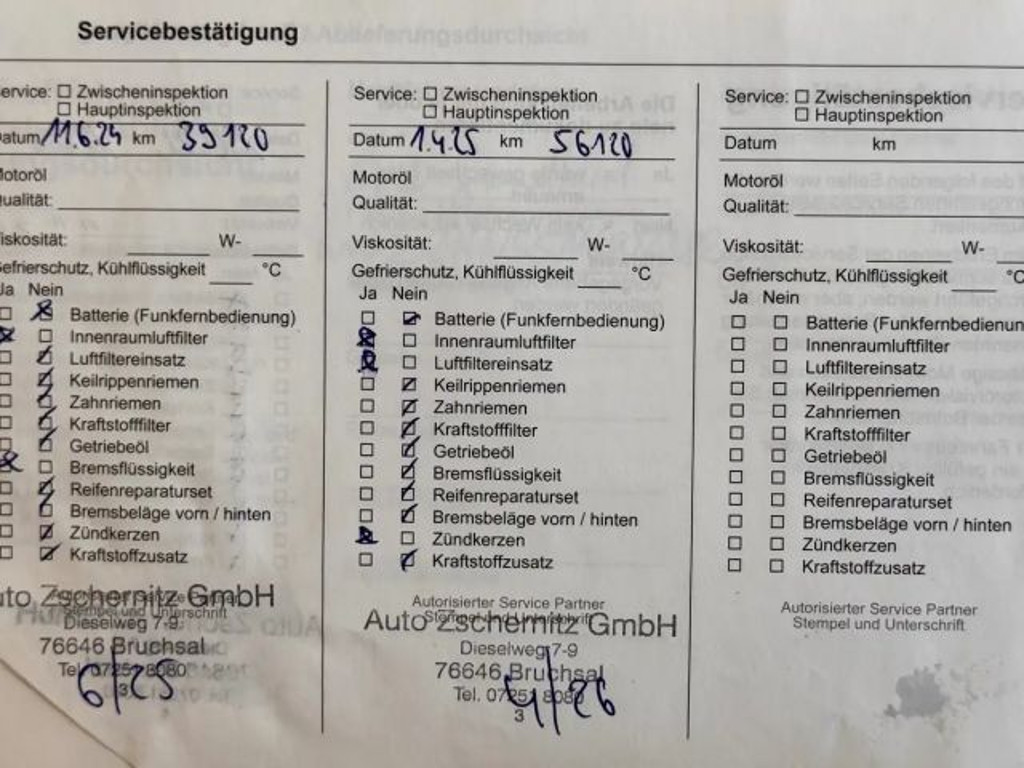 Servicebestätigung
ervice: ☐ Zwischeninspektion
☐ Hauptinspektion
atum 11.6.24 km 39120
Motoröl
ualität:
iskosität: W-
Gefrierschutz, Kühlflüssigkeit °C
Ja Nein
Batterie (Funkfernbedienung)
Innenraumluftfilter
Luftfiltereinsatz
Keilrippenriemen
Zahnriemen
Kraftstofffilter
Getriebeöl
Bremsflüssigkeit
Reifenreparaturset
Bremsbeläge vorn / hinten
Zündkerzen
Kraftstoffzusatz
uto Zschernitz GmbH
Stempel und Unterschrift
Dieselweg 7-9
76646 Bruchsal
Tel. 07251 8080
3
6/25
Service: ☐ Zwischeninspektion
☐ Hauptinspektion
Datum 1.4.25 km 56120
Motoröl
Qualität:
Viskosität: W-
Gefrierschutz, Kühlflüssigkeit °C
Ja Nein
Batterie (Funkfernbedienung)
Innenraumluftfilter
Luftfiltereinsatz
Keilrippenriemen
Zahnriemen
Kraftstofffilter
Getriebeöl
Bremsflüssigkeit
Reifenreparaturset
Bremsbeläge vorn / hinten
Zündkerzen
Kraftstoffzusatz
Autorisierter Service Partner
Stempel und Unterschrift
Auto Zschernitz GmbH
Dieselweg 7-9
76646 Bruchsal
Tel. 07251 8080
3
4/26
Service: ☐ Zwischeninspektion
☐ Hauptinspektion
Datum km
Motoröl
Qualität:
Viskosität: W-
Gefrierschutz, Kühlflüssigkeit °C
Ja Nein
Batterie (Funkfernbedienun
Innenraumluftfilter
Luftfiltereinsatz
Keilrippenriemen
Zahnriemen
Kraftstofffilter
Getriebeöl
Bremsflüssigkeit
Reifenreparaturset
Bremsbeläge vorn / hinten
Zündkerzen
Kraftstoffzusatz
Autorisierter Service Partner
Stempel und Unterschrift